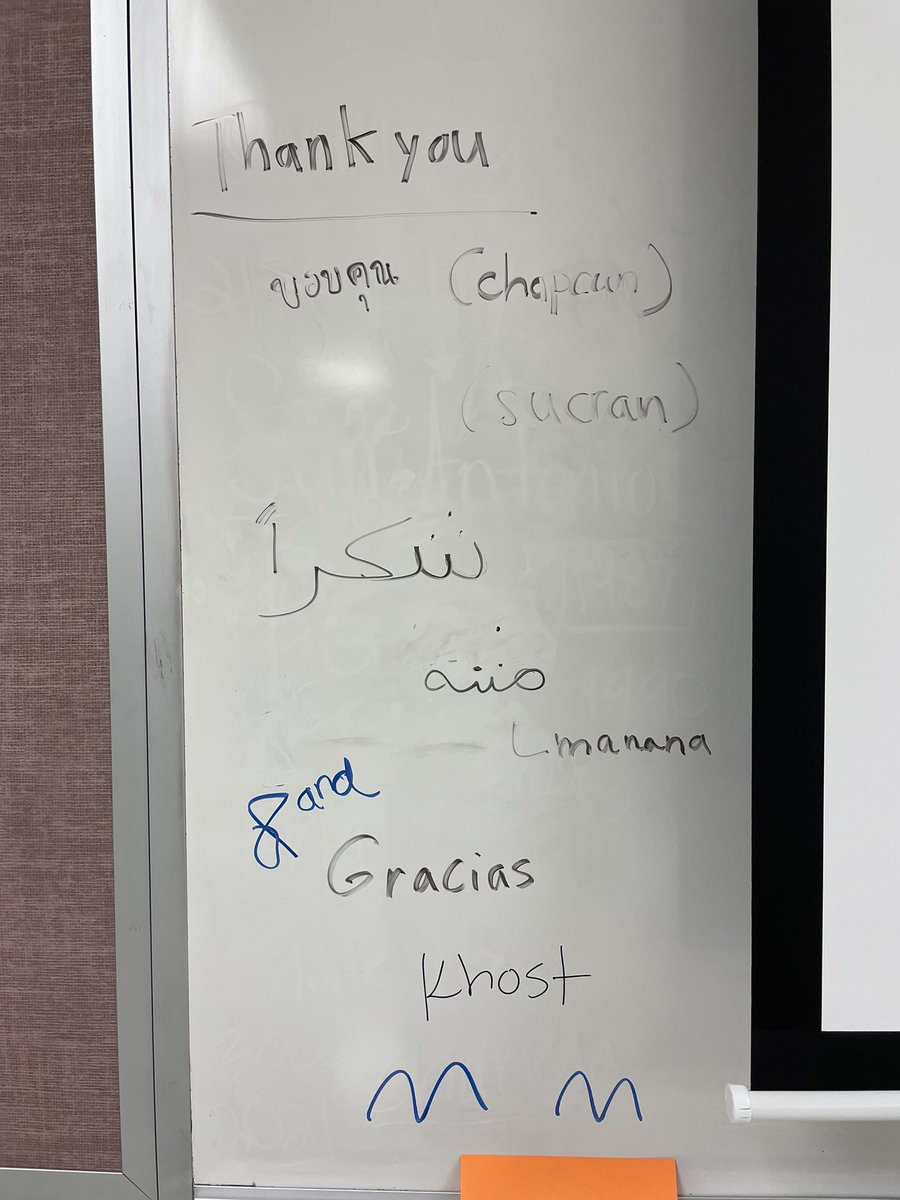 Thank you
ขอบคุณ (chapcun)
(sucran)
شكراً
مننه
manana
& and
Gracias
Khost